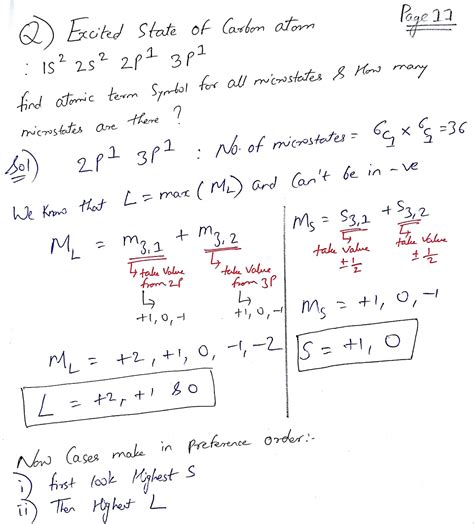 Page 11
Q) Excited State of Carbon atom
: 1S² 2S² 2P¹ 3P¹
find atomic term Symbol for all microstates & How many
microstates are there ?
Sol) 2P¹ 3P¹ : No. of microstates = ⁶C₁ × ⁶C₁ = 36
We Know that L = max (M_L) and Can't be in -ve
M_L = m_3,1 + m_3,2
↳ take Value from 2P
↳ +1, 0, -1
↳ take Value from 3P
↳ +1, 0, -1
M_L = +2, +1, 0, -1, -2
L = +2, +1 & 0
M_s = S_3,1 + S_3,2
↳ take Value ± 1/2
↳ take Value ± 1/2
M_s = +1, 0, -1
S = +1, 0
Now Cases make in preference order:-
i) first look Highest S
ii) Then Highest L